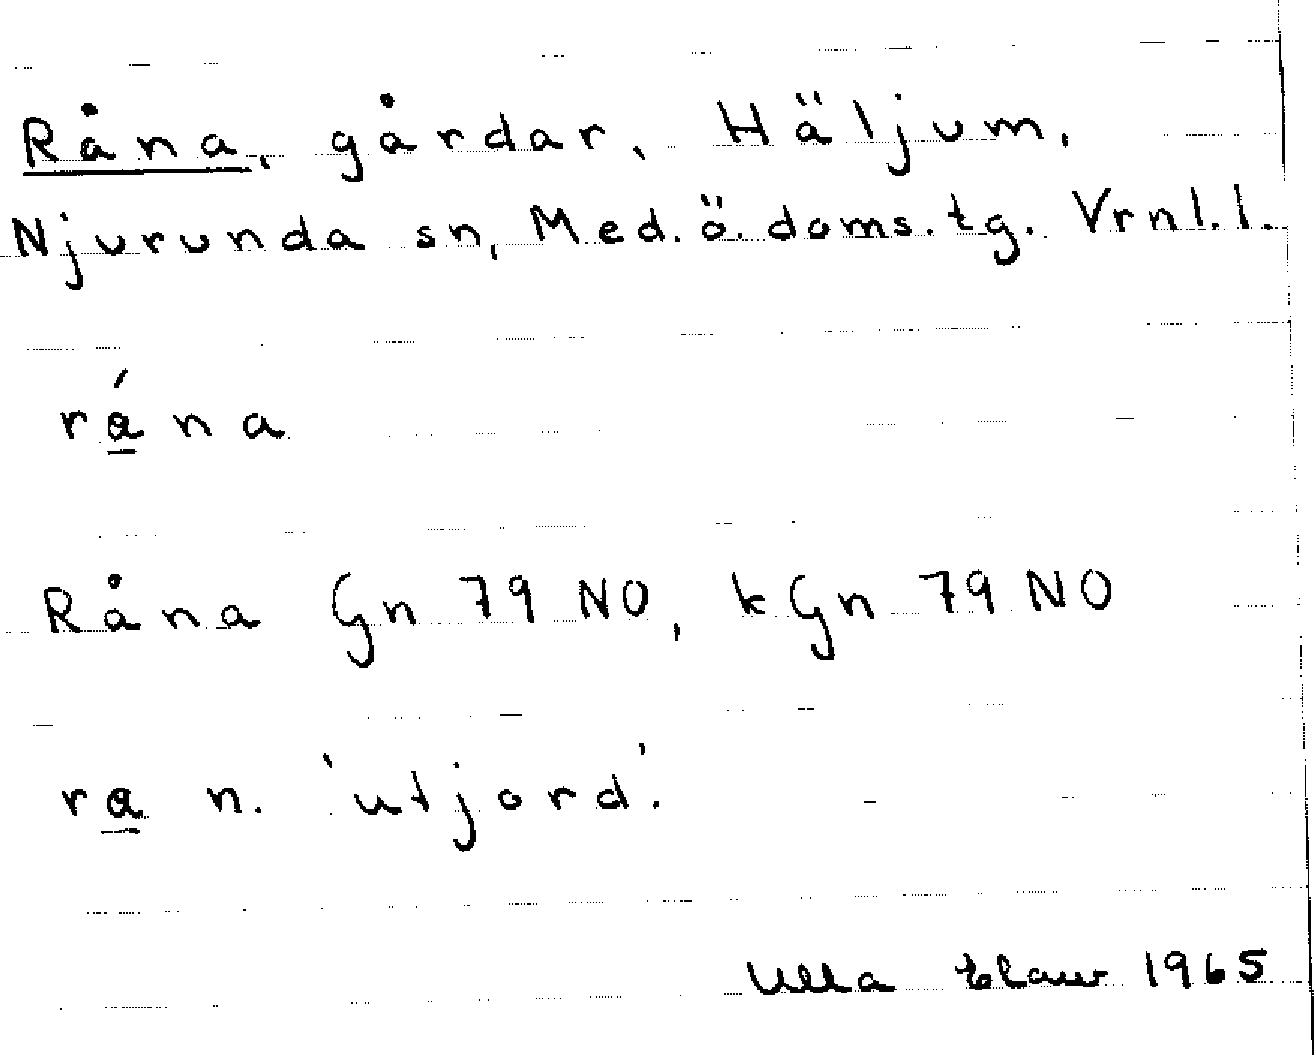 Råna, gårdar, Häljum,
Njurunda sn, Med. ö. doms. tg. Vrnl. l.
rá̱na
Råna Gn 79 NO, kGn 79 NO
ra̱ n. 'utjord'.
Ulla 1965